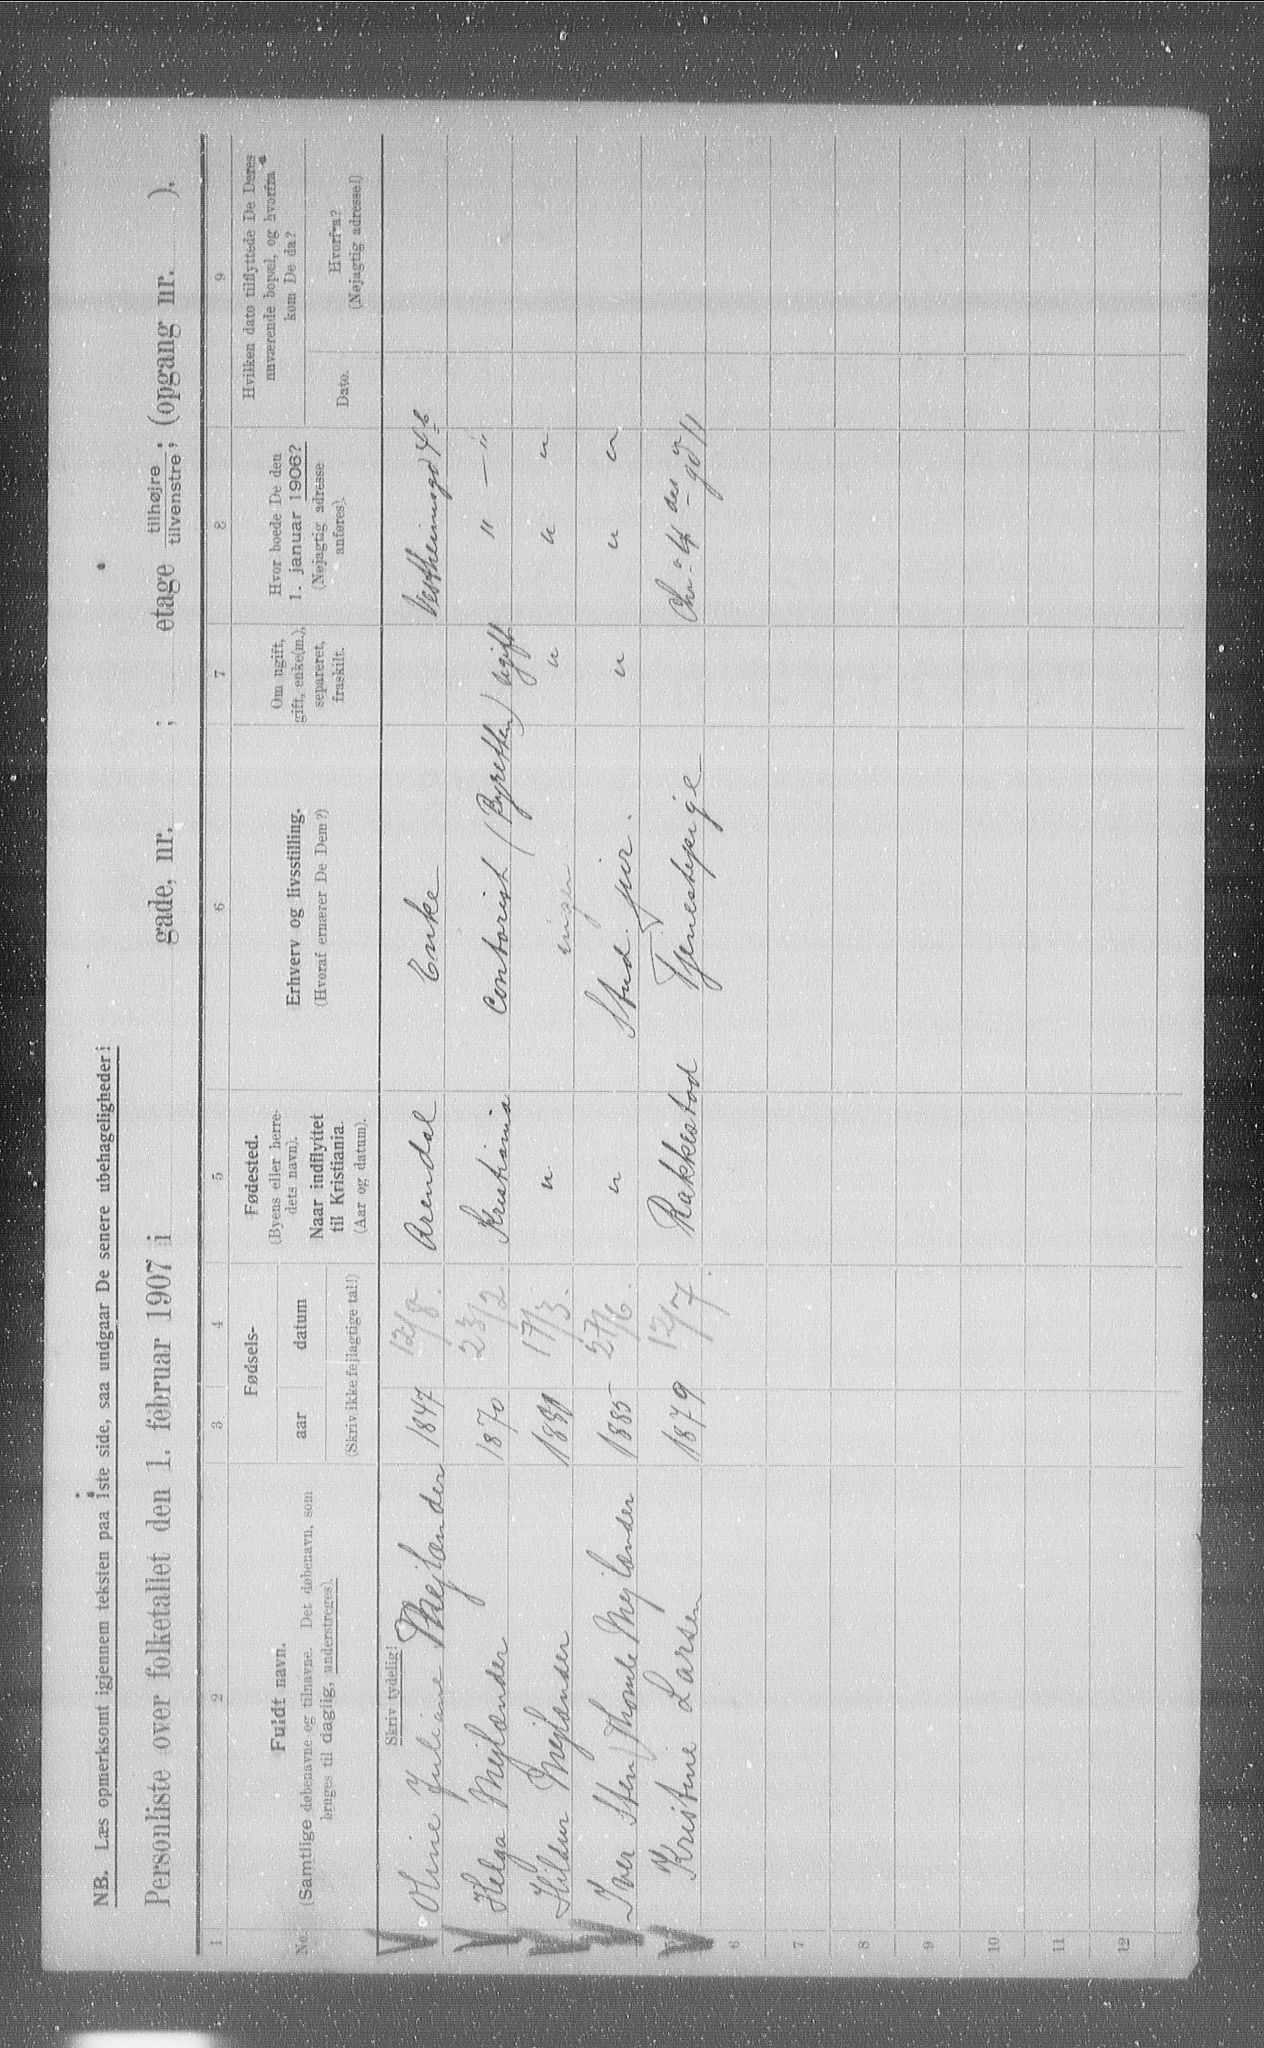 NB. Læs opmerksomt igjennem teksten paa 1ste side, saa undgaar De senere ubehageligheder!
Personliste over folketallet den 1. februar 1907 i gade, nr. ; etage tilhøjre tilvenstre; (opgang nr. ).
1 2 3 4 5 6 7 8 9
No. Fuldt navn. (Samtlige døbenavne og tilnavne. Det døbenavn, som bruges til daglig, understreges).
Fødsels- aar datum (Skriv ikke fejlagtige tal!)
Fødested. (Byens eller herredets navn). Naar indflyttet til Kristiania. (Aar og datum).
Erhverv og livsstilling. (Hvoraf ernærer De Dem?)
Om ugift, gift, enke(m.), separeret, fraskilt.
Hvor boede De den 1. januar 1906? (Nøjagtig adresse anføres).
Hvilken dato tilflyttede De Deres nuværende bopæl, og hvorfra kom De da?
Dato. Hvorfra? (Nøjagtig adresse!)
Skriv tydelig!
Oline Juliane Mejlænder 1847 12/8. Arendal Enke Vestheimsgd 4b
Helga Mejlænder 1870 23/2. Kristiania Contorist (Byretten) ugift " — "
Hildur Mejlænder 17/3. " ingen " " "
Iver Sten Thomle Mejlænder 1885 27/6. " Stud. jur. " " "
Kristine Larsen 1879 12/7. Rakkestad Tjenestepige
6
7
8
9
10
11
12